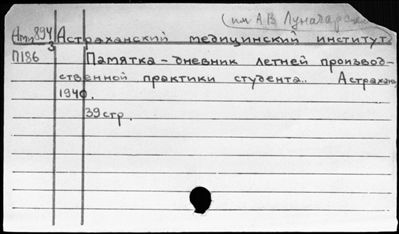 (им А.В. Луначарск
Астраханский медицинский институт.
П186 Памятка - дневник летней производ-
ственной практики студента.. Астрахань
1940.
39 стр.